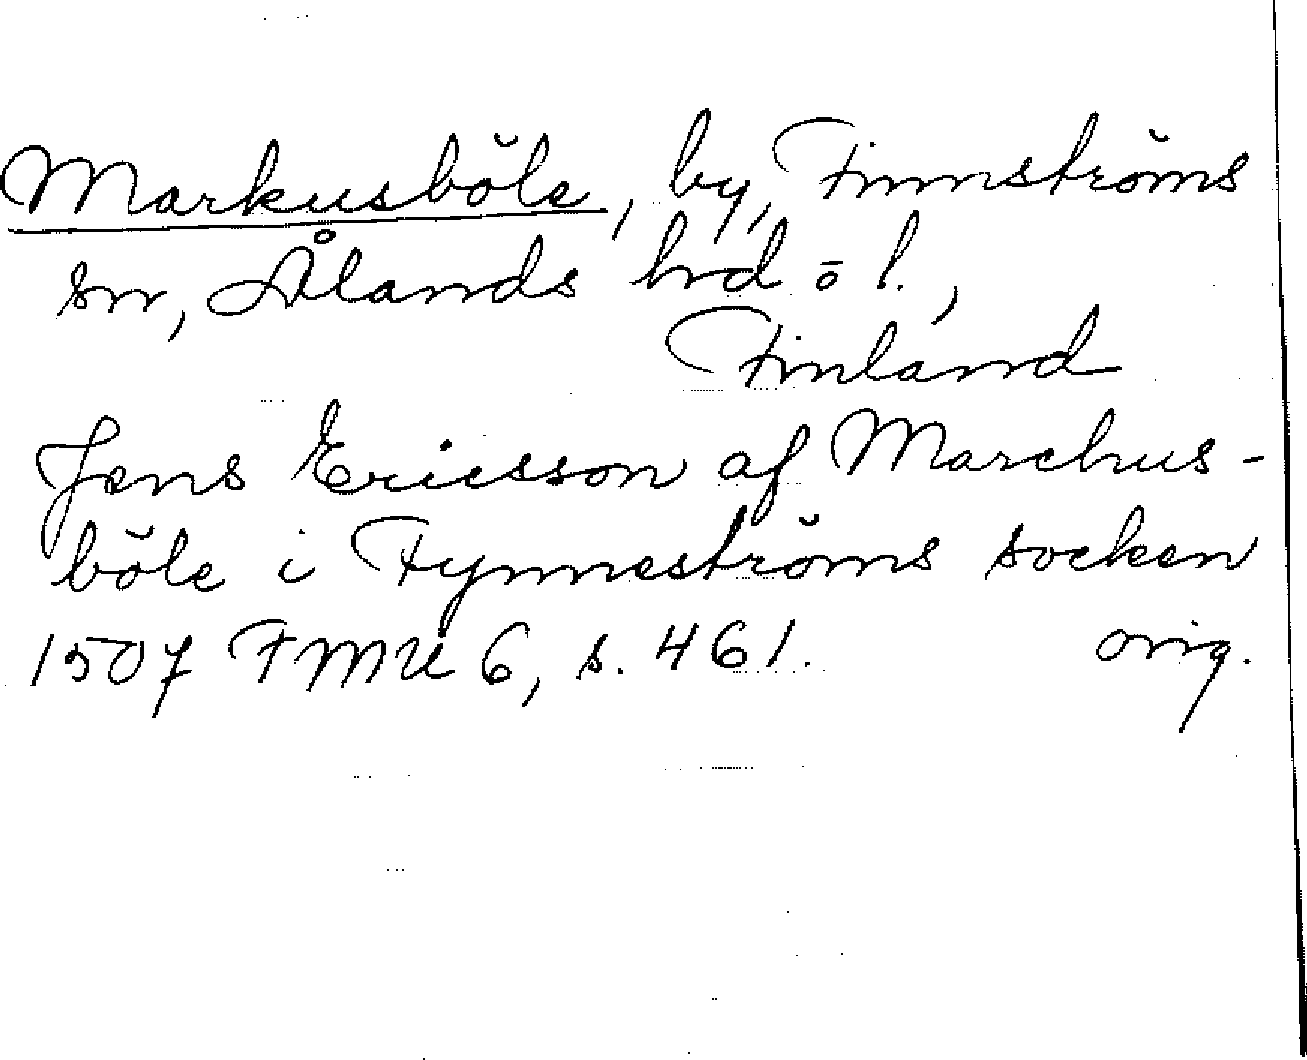 Markusböle, by, Finnströms
sn, Ålands hrd o l.,
Finland
Jens Ericsson af Marchus-
böle i Fynneströms socken
1507 FMU 6, s. 461. orig.